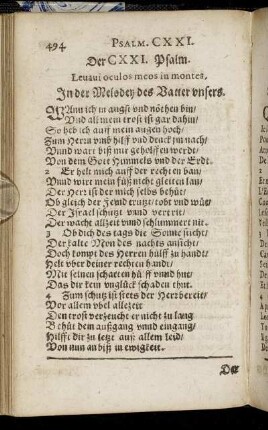 494 PSALM. CXXI.
Der CXXI. Psalm.
Levavi oculos meos in montes.
In der Melodey des Vatter vnsers.
WAnn ich in angst vnd nöthen bin/
Vnd all mein trost ist gar dahin/
So heb ich auff mein augen hoch/
Zum Herrn vmb hilff vnd
Vnnd wart biß mir geholffen werdt/
Von dem Gott Himmels vnd der Erdt.
2 Er helt mich auff der rechten ban/
Vnnd wirt mein füß nicht gleiten lan/
Der Herr ist der mich selbs behüt/
Ob gleich der Feind trutzt/ tobt vnd wüt/
Der Israel schützt vnnd
Der wacht allzeit vnnd schlummert nit.
3 Ob dich des tags die Sonne sticht/
Der kalte Mon des nachts ansicht/
Doch kompt des Herren hülff zu handt/
Helt vber deiner rechten handt/
Mit seinen schatten hüfft vnnd hut/
Das dir kein vnglück schaden thut.
4 Zum schutz ist stets der Herr bereit/
Vor allem vbel allezeit
Den trost verzeucht er nicht zu lang
Behüt dein außgang vnnd eingang/
Hilfft dir zu letzt auß allem leid/
Von nun an biß in ewigkeit.
Der